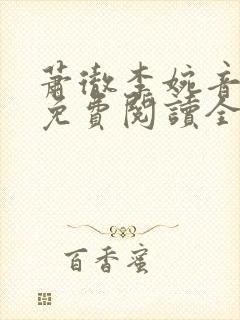 蕭徹李婉音
免費閱讀全
百香蜜